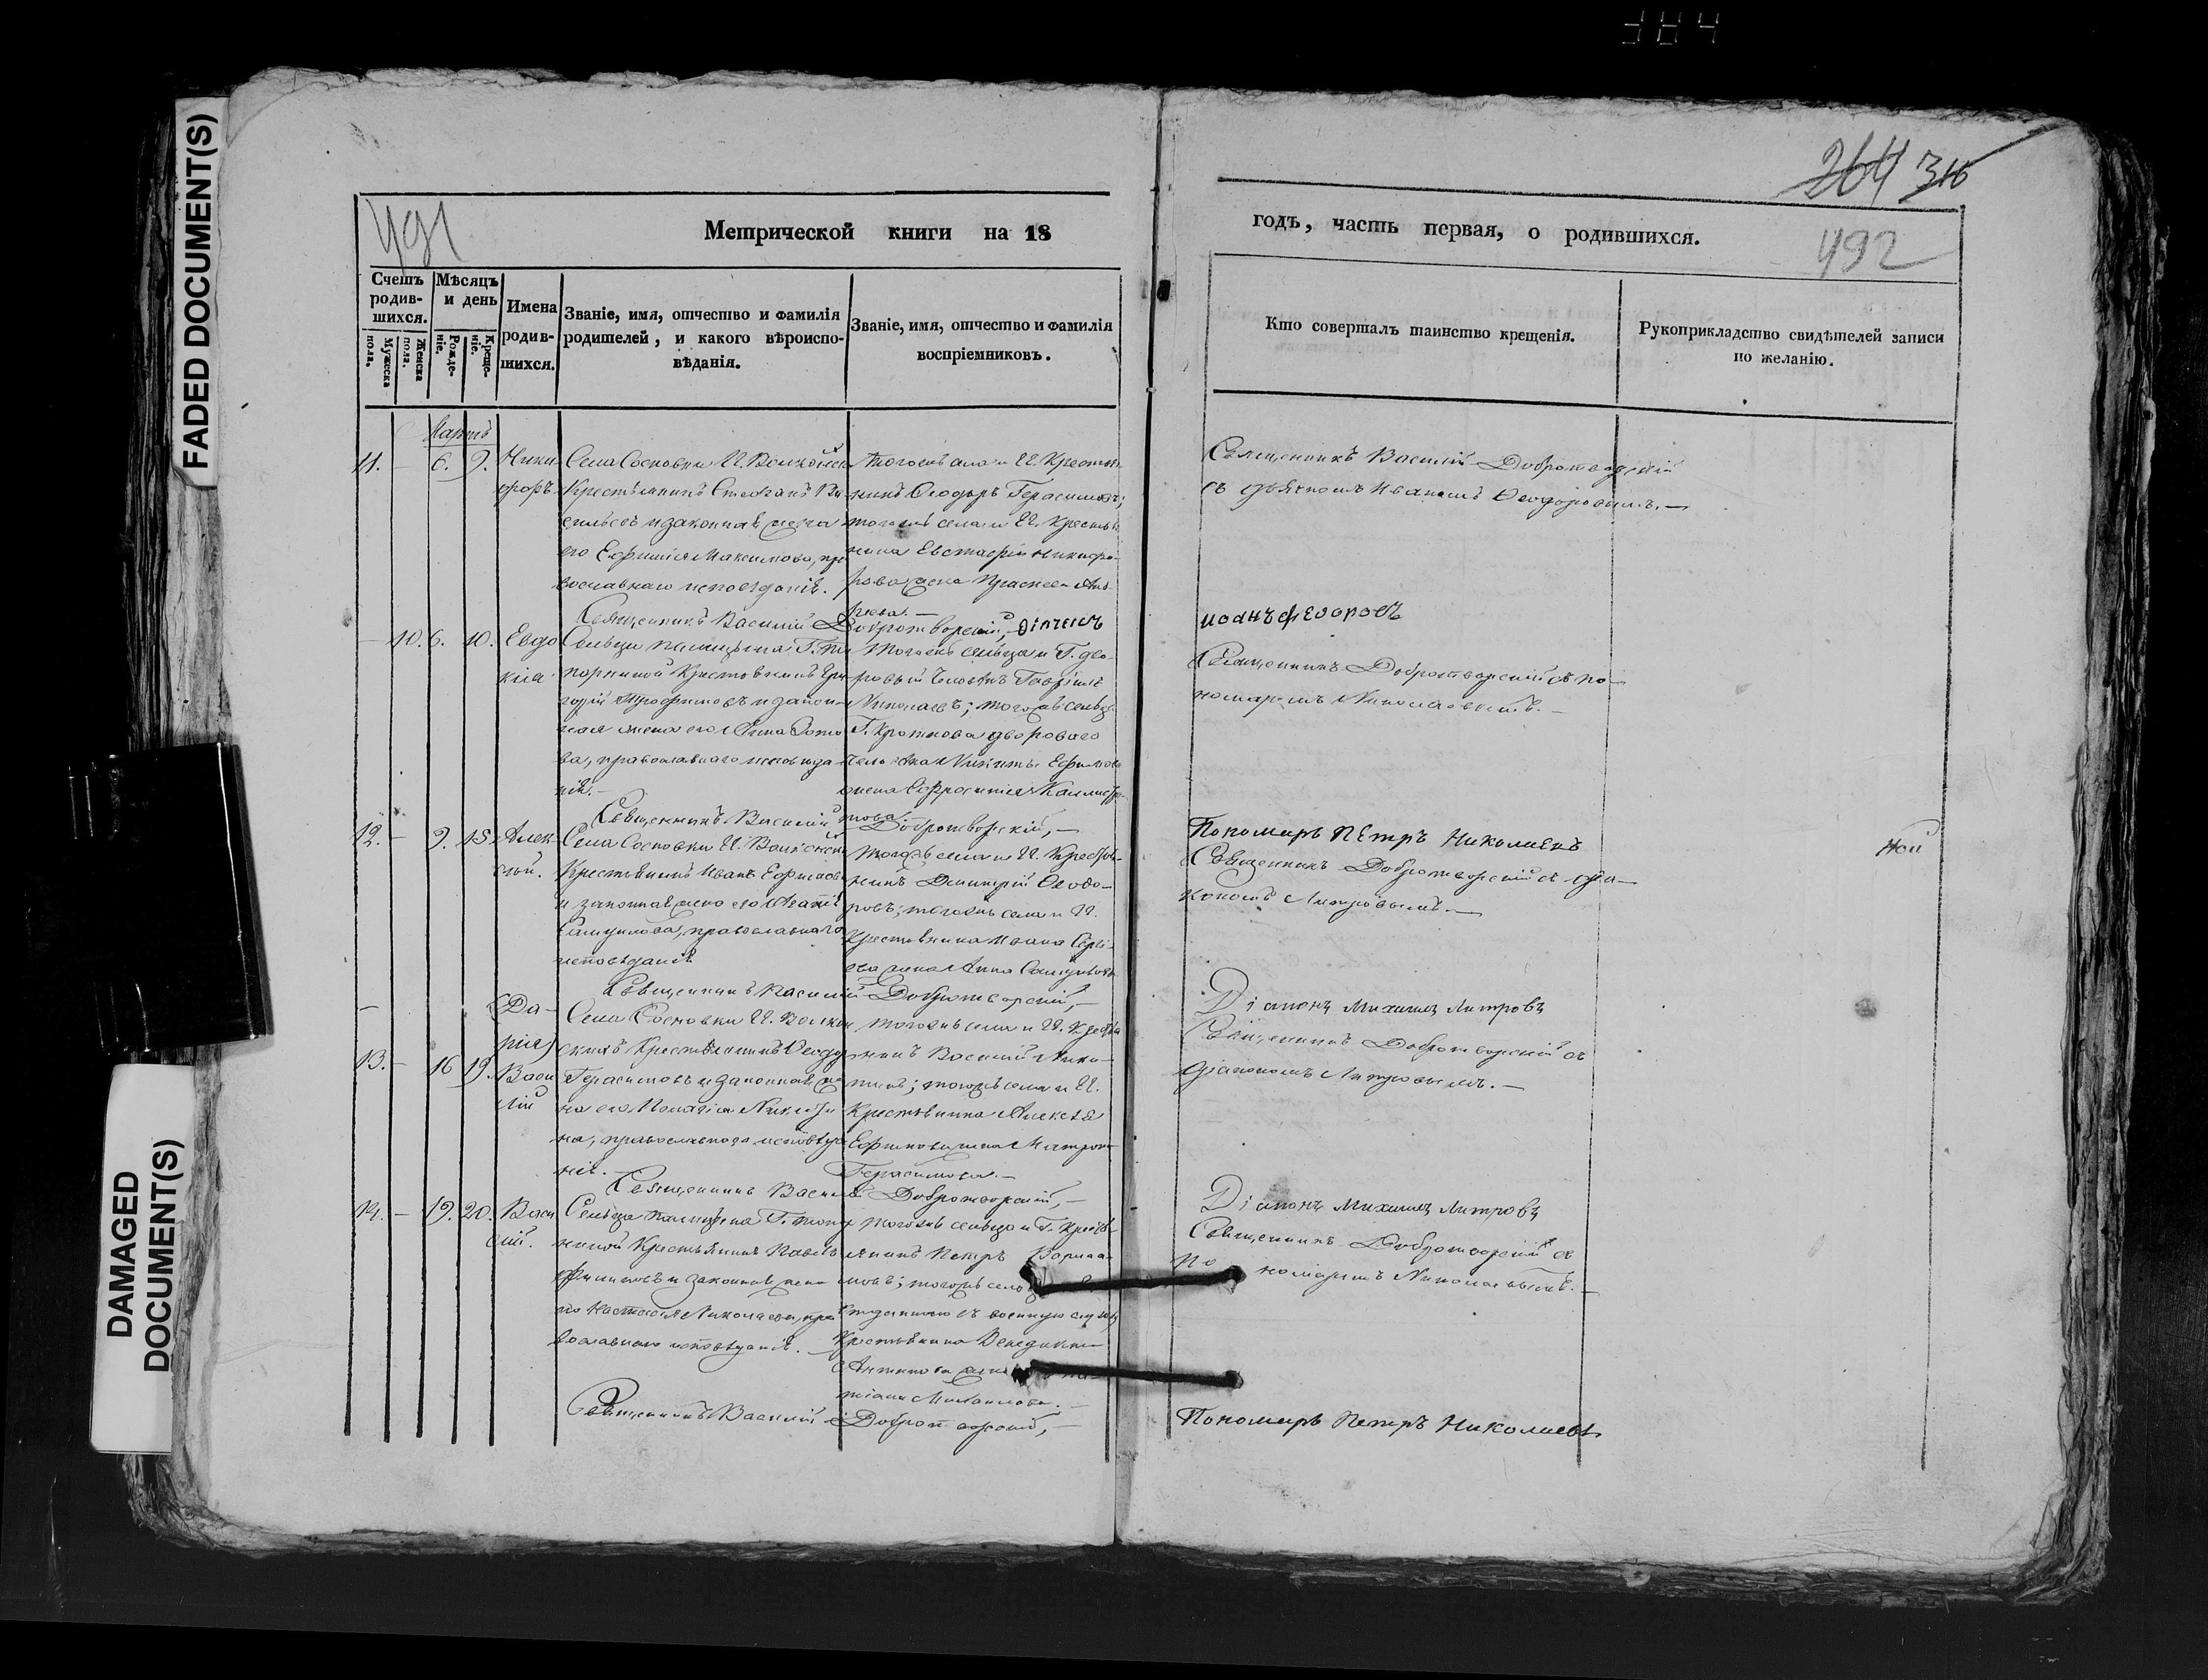 384
FADED DOCUMENT(S)
DAMAGED
DOCUMENT(S)
491
Метрической книги на 18
Счетъ
родив-
шихся.
Мужеска
пола.
Женска
пола.
Мѣсяцъ
и день
Рожде-
нiе.
Креще-
нiе.
Имена
родив-
шихся.
Званiе, имя, отчество и фамилiя
родителей, и какого вѣроиспо-
вѣданiя.
Званiе, имя, отчество и фамилiя
воспрiемниковъ.
Мартъ
11. – 6. 9. Ники
форъ
Села Сосновки
Крестьянинъ Стефанъ Ва
сильевъ и законная жена
его Ефимiя Максимова, пра
вославнаго исповѣданiя.
тогожъ села и Крестья
нинъ Ѳеодоръ Герасимовъ;
тогожъ села и Крестья
нина Евстафiя Никифо-
рова жена
Священникъ Василiй Добротворскiй,
– 10. 6. 10. Евдо
кiя
Сельца Г.
Крестьянинъ Гри
горiй Трофимовъ и закон-
ная жена его Анна
ва, православнаго исповѣда
нiя.
тогожъ сельца и Г. дво-
ровый человѣкъ Гаврiилъ
Николаевъ; тогожъ сельца
Г. Кроткова двороваго
человѣка Никиты Ефимова
жена Ефросинiя Каллистра-
това.
Священникъ Василiй Добротворскiй,
12. – 9. 15 Алек-
сѣй.
Села Сосновки
Крестьянинъ Иванъ Ефимовъ
и законная жена его
Самуилова, православнаго
исповѣданiя
тогожъ села и Крестья-
нинъ Димитрiй Ѳеодо-
ровъ; тогожъ села и
Крестьянина Ивана Сергѣ-
ева жена Анна Самуилова
Священникъ Василiй Добротворскiй,
– (Да-
рiя)
13. – 16 19. Васи
лiй
Села Сосновки
Крестьянинъ Ѳеодоръ
Герасимовъ и законная же
на его Никити
на, православнаго исповѣда
нiя.
тогожъ села и Крестья
нинъ Василiй Ники-
тинъ; тогожъ села и
Крестьянина Алексѣя
Ефимова жена Матрона
Герасимова.
Священникъ Василiй Добротворскiй,
14. – 19. 20. Васи
лiй.
Сельца Г.
Крестьянинъ Павелъ
Филиповъ и законная жена
его Настасiя Николаева, пра
вославнаго исповѣданiя.
тогожъ сельца и Г. Кресть-
янинъ Петръ
тогожъ
отданнаго въ военную службу
Крестьянина Венедикта
Антипова жена
тiана
Священникъ Василiй Добротворскiй,
264 316
годъ, часть первая, о родившихся.
492
Кто совершалъ таинство крещенiя.
Рукоприкладство свидѣтелей записи
по желанiю.
Священникъ Василiй Добротворскiй
съ дьячкомъ Иваномъ Ѳеодоровымъ.
иоанъ федоровъ
Священникъ Добротворскiй съ по-
номаремъ Николаевымъ.
Пономаръ Петръ Николаевъ
Священникъ Добротворскiй съ дiа-
кономъ Митровымъ.
Дiаконъ Михаилъ Митровъ
Священникъ Добротворскiй съ
дiакономъ Митровымъ.
Дiаконъ Михаилъ Митровъ
Священникъ Добротворскiй съ
по номаремъ Николаевымъ.
Пономаръ Петръ Николаевъ